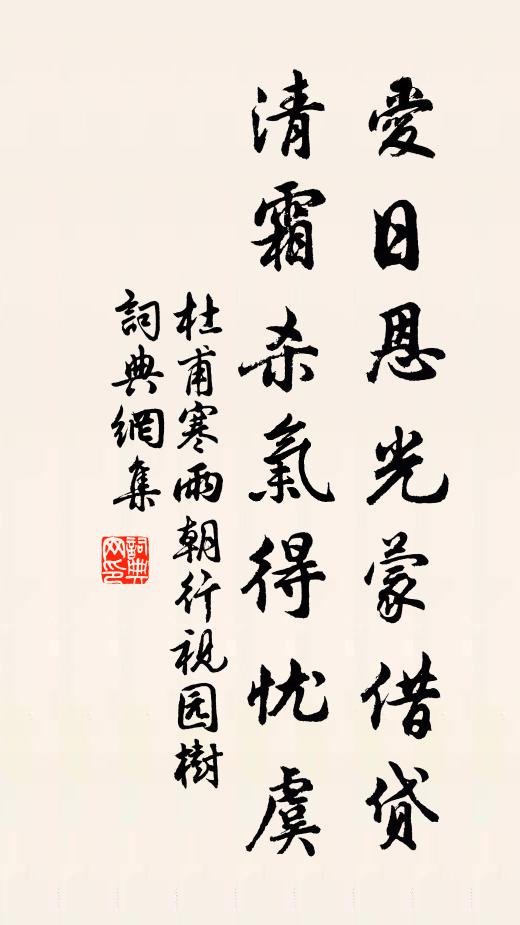 愛日恩光蒙借貸
清霜杀氣得忧虞
杜甫寒雨朝行視园樹
詞典網集
詞典网印